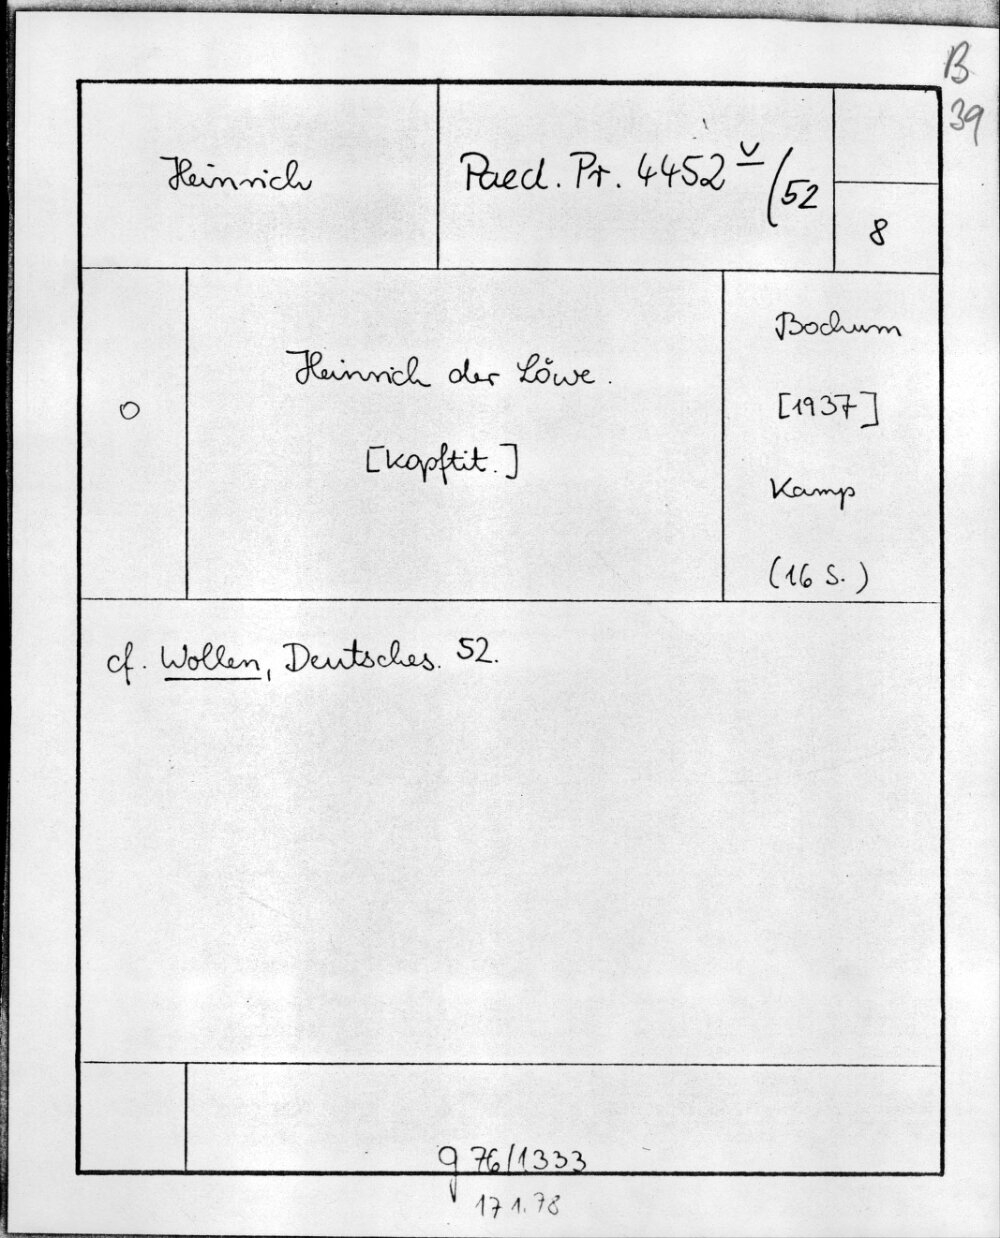 B
39
Heinrich
Paed. Pr. 4452 v/52
8
o
Heinrich der Löwe.
[Kopftit.]
Bochum
[1937]
Kamp
(16 S.)
cf. Wollen, Deutsches. 52.
g 76/1333
17 1.78